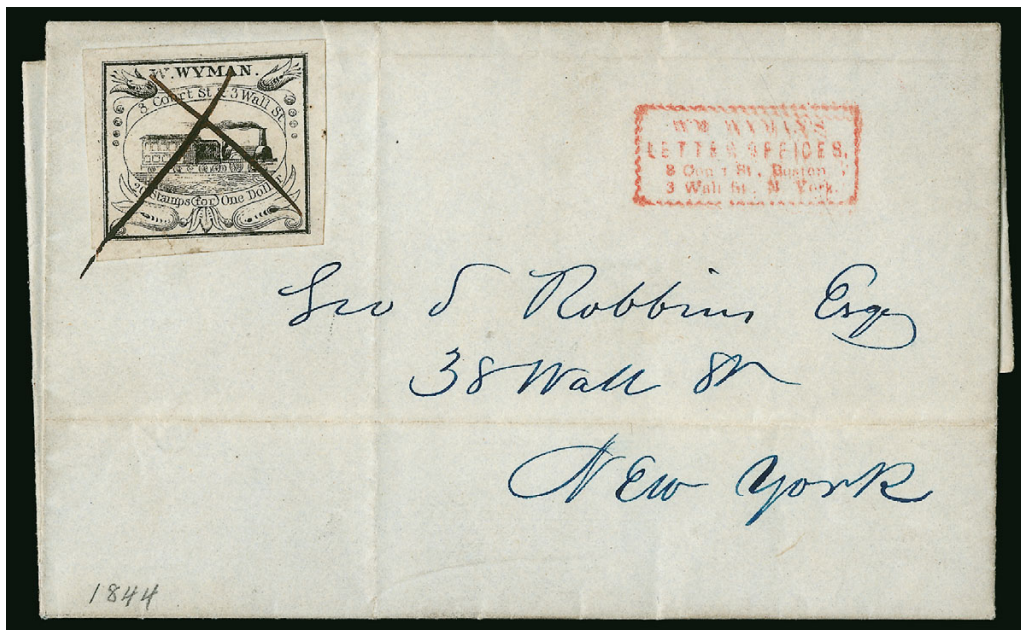 W. WYMAN.
8 Court St & 3 Wall St
20 stamps for One Dollar
WM WYMAN'S
LETTER OFFICES,
8 Court St, Boston
3 Wall St, N. York.
Geo S Robbins Esq
38 Wall St
New York
1844